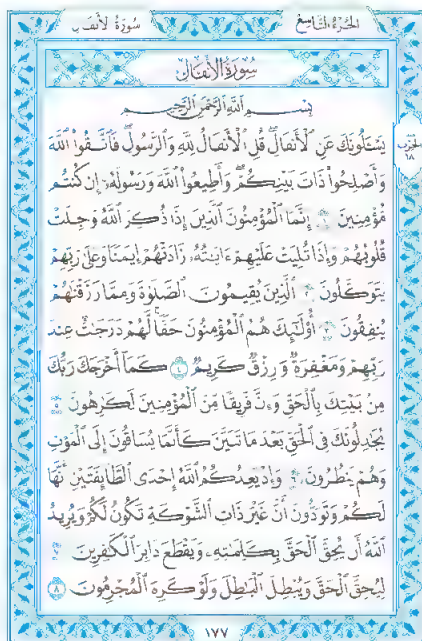 الجزء التاسع سورة الأنفال
سورة الأنفال
بسم الله الرحمن الرحيم
يَسْـَٔلُونَكَ عَنِ ٱلْأَنفَالِ قُلِ ٱلْأَنفَالُ لِلَّهِ وَٱلرَّسُولِ فَٱتَّقُوا۟ ٱللَّهَ
وَأَصْلِحُوا۟ ذَاتَ بَيْنِكُمْ وَأَطِيعُوا۟ ٱللَّهَ وَرَسُولَهُۥٓ إِن كُنتُم
مُّؤْمِنِينَ ١ إِنَّمَا ٱلْمُؤْمِنُونَ ٱلَّذِينَ إِذَا ذُكِرَ ٱللَّهُ وَجِلَتْ
قُلُوبُهُمْ وَإِذَا تُلِيَتْ عَلَيْهِمْ ءَايَـٰتُهُۥ زَادَتْهُمْ إِيمَـٰنًا وَعَلَىٰ رَبِّهِمْ
يَتَوَكَّلُونَ ٢ ٱلَّذِينَ يُقِيمُونَ ٱلصَّلَوٰةَ وَمِمَّا رَزَقْنَـٰهُمْ
يُنفِقُونَ ٣ أُو۟لَـٰٓئِكَ هُمُ ٱلْمُؤْمِنُونَ حَقًّا لَّهُمْ دَرَجَـٰتٌ عِندَ
رَبِّهِمْ وَمَغْفِرَةٌ وَرِزْقٌ كَرِيمٌ ٤ كَمَآ أَخْرَجَكَ رَبُّكَ
مِنۢ بَيْتِكَ بِٱلْحَقِّ وَإِنَّ فَرِيقًا مِّنَ ٱلْمُؤْمِنِينَ لَكَـٰرِهُونَ ٥
يُجَـٰدِلُونَكَ فِى ٱلْحَقِّ بَعْدَ مَا تَبَيَّنَ كَأَنَّمَا يُسَاقُونَ إِلَى ٱلْمَوْتِ
وَهُمْ يَنظُرُونَ ٦ وَإِذْ يَعِدُكُمُ ٱللَّهُ إِحْدَى ٱلطَّآئِفَتَيْنِ أَنَّهَا
لَكُمْ وَتَوَدُّونَ أَنَّ غَيْرَ ذَاتِ ٱلشَّوْكَةِ تَكُونُ لَكُمْ وَيُرِيدُ
ٱللَّهُ أَن يُحِقَّ ٱلْحَقَّ بِكَلِمَـٰتِهِۦ وَيَقْطَعَ دَابِرَ ٱلْكَـٰفِرِينَ ٧
لِيُحِقَّ ٱلْحَقَّ وَيُبْطِلَ ٱلْبَـٰطِلَ وَلَوْ كَرِهَ ٱلْمُجْرِمُونَ ٨
الحزب
١٨
١٧٧